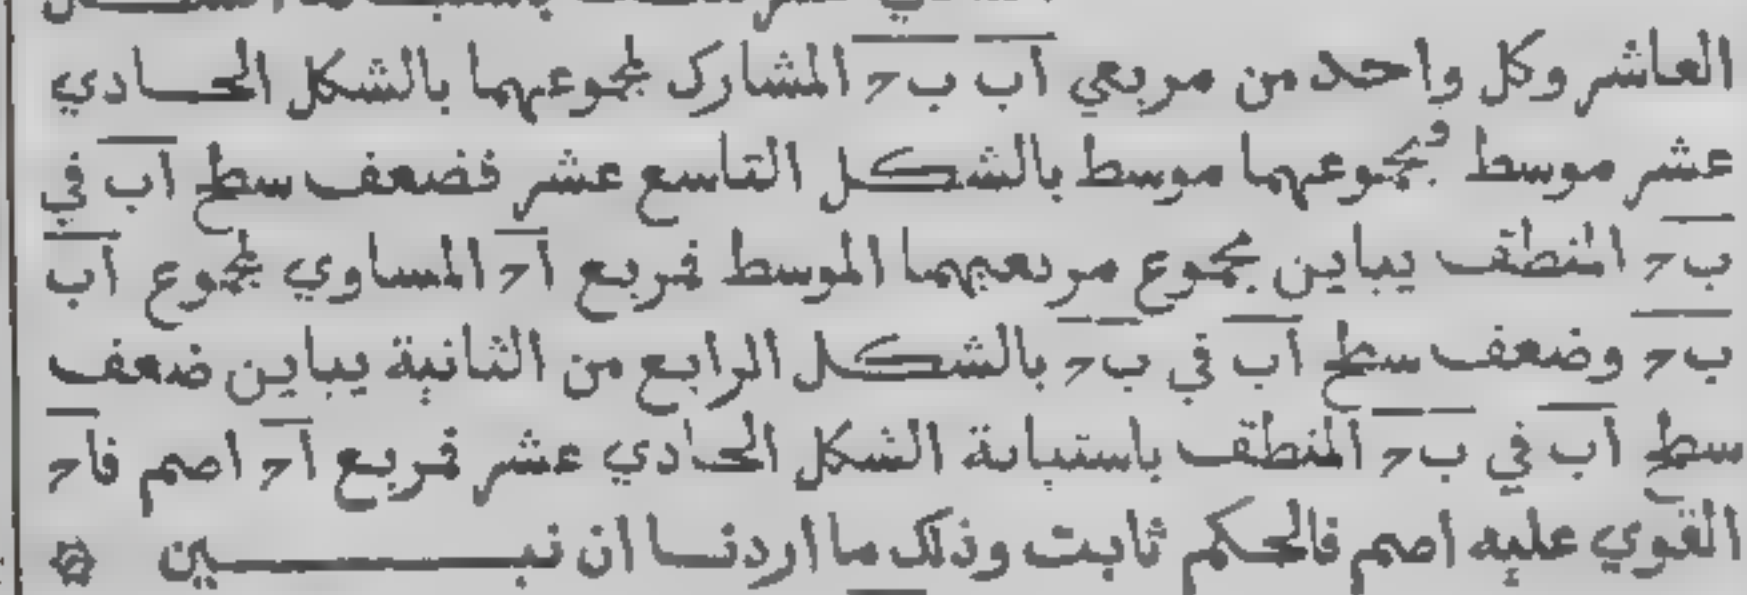 العاشر وكل واحد من مربعي اَب ب‍ح المشارك لمجموعهما بالشكل الحادي
عشر موسط ومجموعهما موسط بالشكل التاسع عشر فضعف سطح اَب في
ب‍ح المنطق يباين مجموع مربعيهما الموسط فمربع اَح المساوي لمجموع اَب
ب‍ح وضعف سطح اَب في ب‍ح بالشكل الرابع من الثانية يباين ضعف
سطح اَب في ب‍ح المنطق باستبانة الشكل الحادي عشر فمربع اَح اصم فاَح
القوي عليه اصم فالحكم ثابت وذلك ما اردنا ان نبين